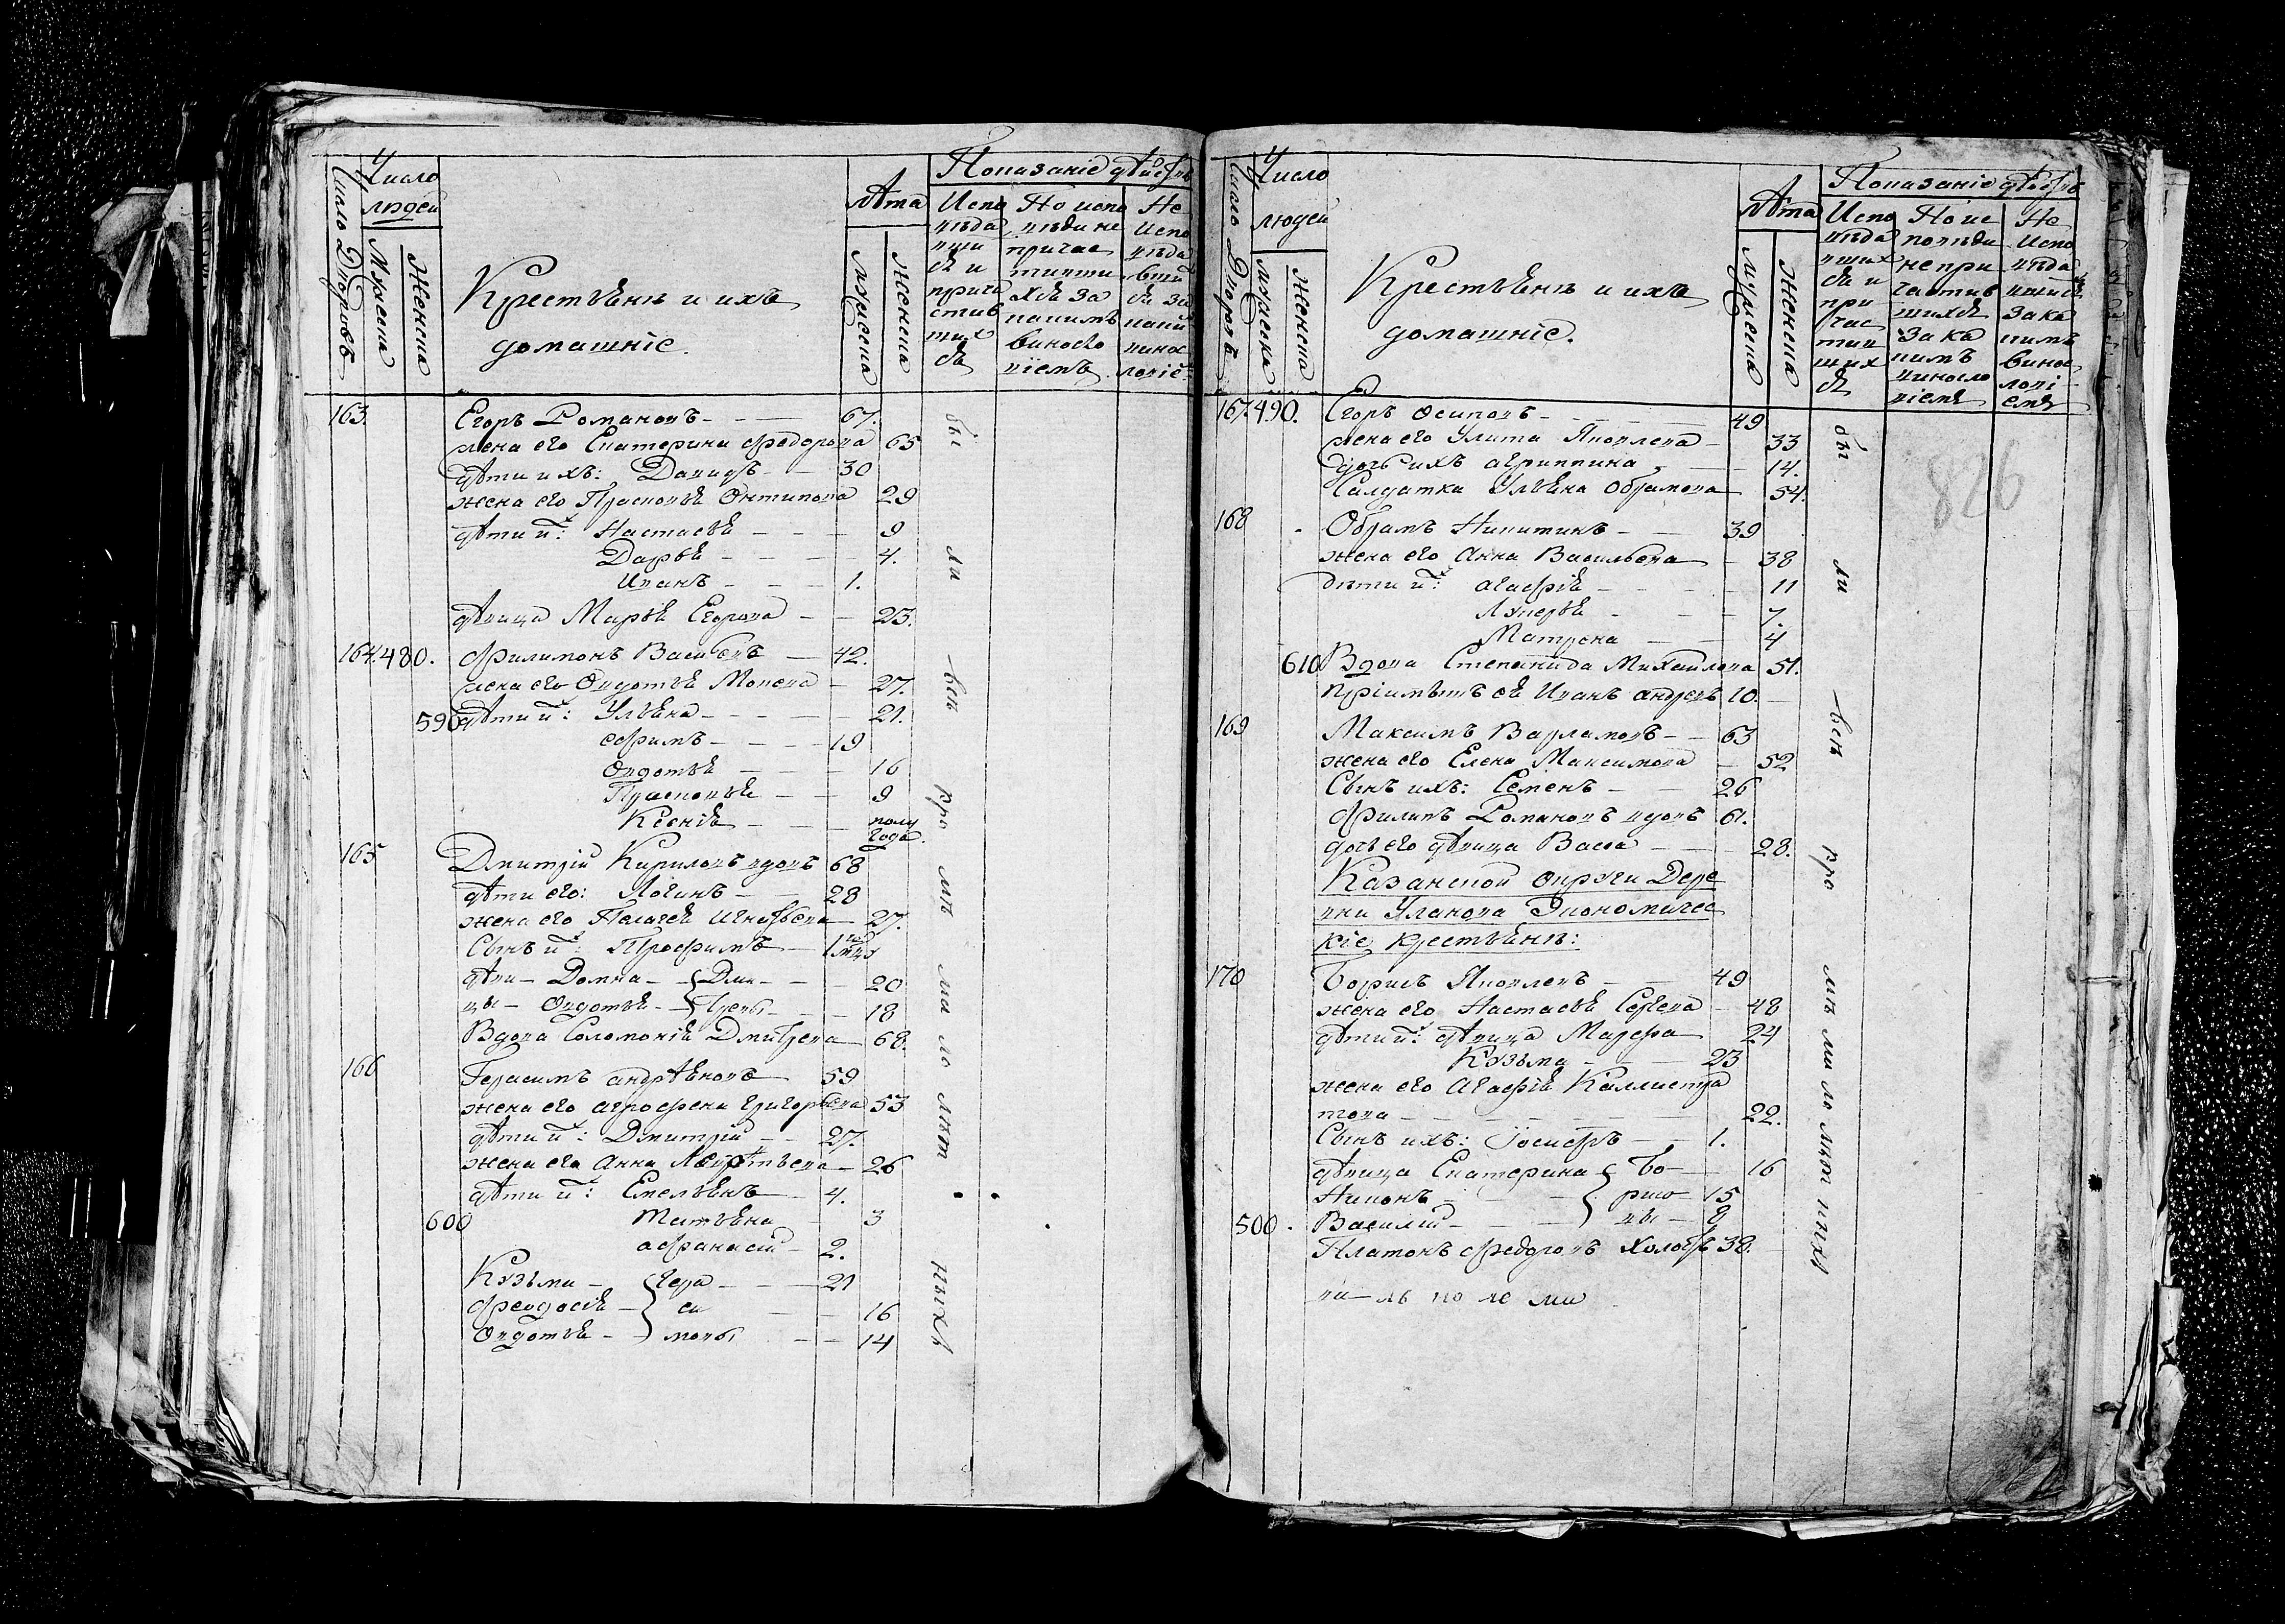 Число Дворовъ
Число людей
Мужеска
Женска
Крестьянъ и ихъ
домашніе.
Лѣта
мужеска
женска
Показаніе дѣйств
Испо
вѣда
вши
ся и
прича
стив
ших
ся
Но испо
вѣди не
причас
тивши
хся за
какимъ
виносло
віемъ
Не
испо
вѣда
вши
ся за
каки
винос
ловіе
163. Егоръ Романовъ 67.
жена его Екатерина Федорова 65
дѣти ихъ: Давидъ 30
жена его Прасковья Онтипова 29
дѣти их: Настасья 9
Дарья 4.
Иванъ 1.
дѣвица Марья Егорова 23.
164. 480. Филимонъ Васильевъ 42.
жена его Овдотья Мокеева 27.
590 дѣти их: Ульяна 21.
Ефимъ 19
Овдотья 16
Прасковья 9
Ксенія полу
года.
165 Дмитрій Кириловъ вдовъ 68
дѣти его: Логинъ 28
жена его Пелагея Игнатьева 27.
Сынъ их: Трофимъ 1
дѣви Домна Дми 20
цы Овдотья тревы 18
Вдова Соломонія Дмитрева 68.
166 Герасимъ андрѣяновъ 59
жена его агрофена Григорьева 53
дѣти их: Дмитрій 27.
жена его Анна 26
дѣти их: Емельянъ 4.
600 Татьяна 3
афанасий 2.
Кузьма Гера 21
Феодосья си 16
Овдотья мовы 14
бы
ли
всѣ
во
мѣ
ма
ло
лѣт
ныхъ
Число Дворовъ
Число
людей
мужеска
женска
Крестьянъ и ихъ
домашніе.
Лѣта
мужеска
женска
Показаніе дѣйств
Испо
вѣда
вших
ся и
при
час
тив
ших
ся
Но ис
повѣди
не при
частив
шихся
За ка
кимъ
виносло
віемъ
Не
испо
вѣда
вших
За ка
кимъ
винос
лові
емъ
826
167. 490. Егоръ Осиповъ 49
жена его Улита Яковлева 33
дочь ихъ агриппина 14.
Салдатка Ульяна Обрамова 54.
168 Обрамъ Никитинъ 39
жена его Анна Васильева 38
дѣти их: агафія 11
Лукерья 7.
Матрена 4
610 Вдова Степанида Михайлова 51.
пріимышъ ея Иванъ андреевъ 10.
169 Максимъ Варламовъ 63
жена его Елена Максимова 52
Сынъ ихъ: Семенъ 26
Филипъ Романовъ вдовъ 61.
дочь его дѣвица Васса 28.
Казанской округи Дере
вни Уланова Экономичес
кіе крестьянъ:
170 Борисъ Яковлевъ 49
жена его Настасья Сергева 48
дѣти их: дѣвица Марфа 24
Кузьма 23
жена его Агафія Каллистра
това 22.
Сынъ ихъ: Іосифъ 1.
дѣвица Екатерина Бо 16
Никонъ рисо 15
500. Василий вы 8
Платонъ Федоровъ холостъ 38.
бы
ли
всѣ
мѣ
ма
ло
лѣт
ныхъ